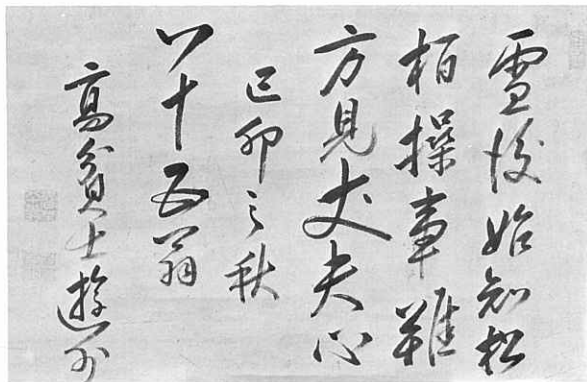 雪後始知松
柏操事難
方見丈夫心
己卯之秋
八十五翁
高貧士遊外